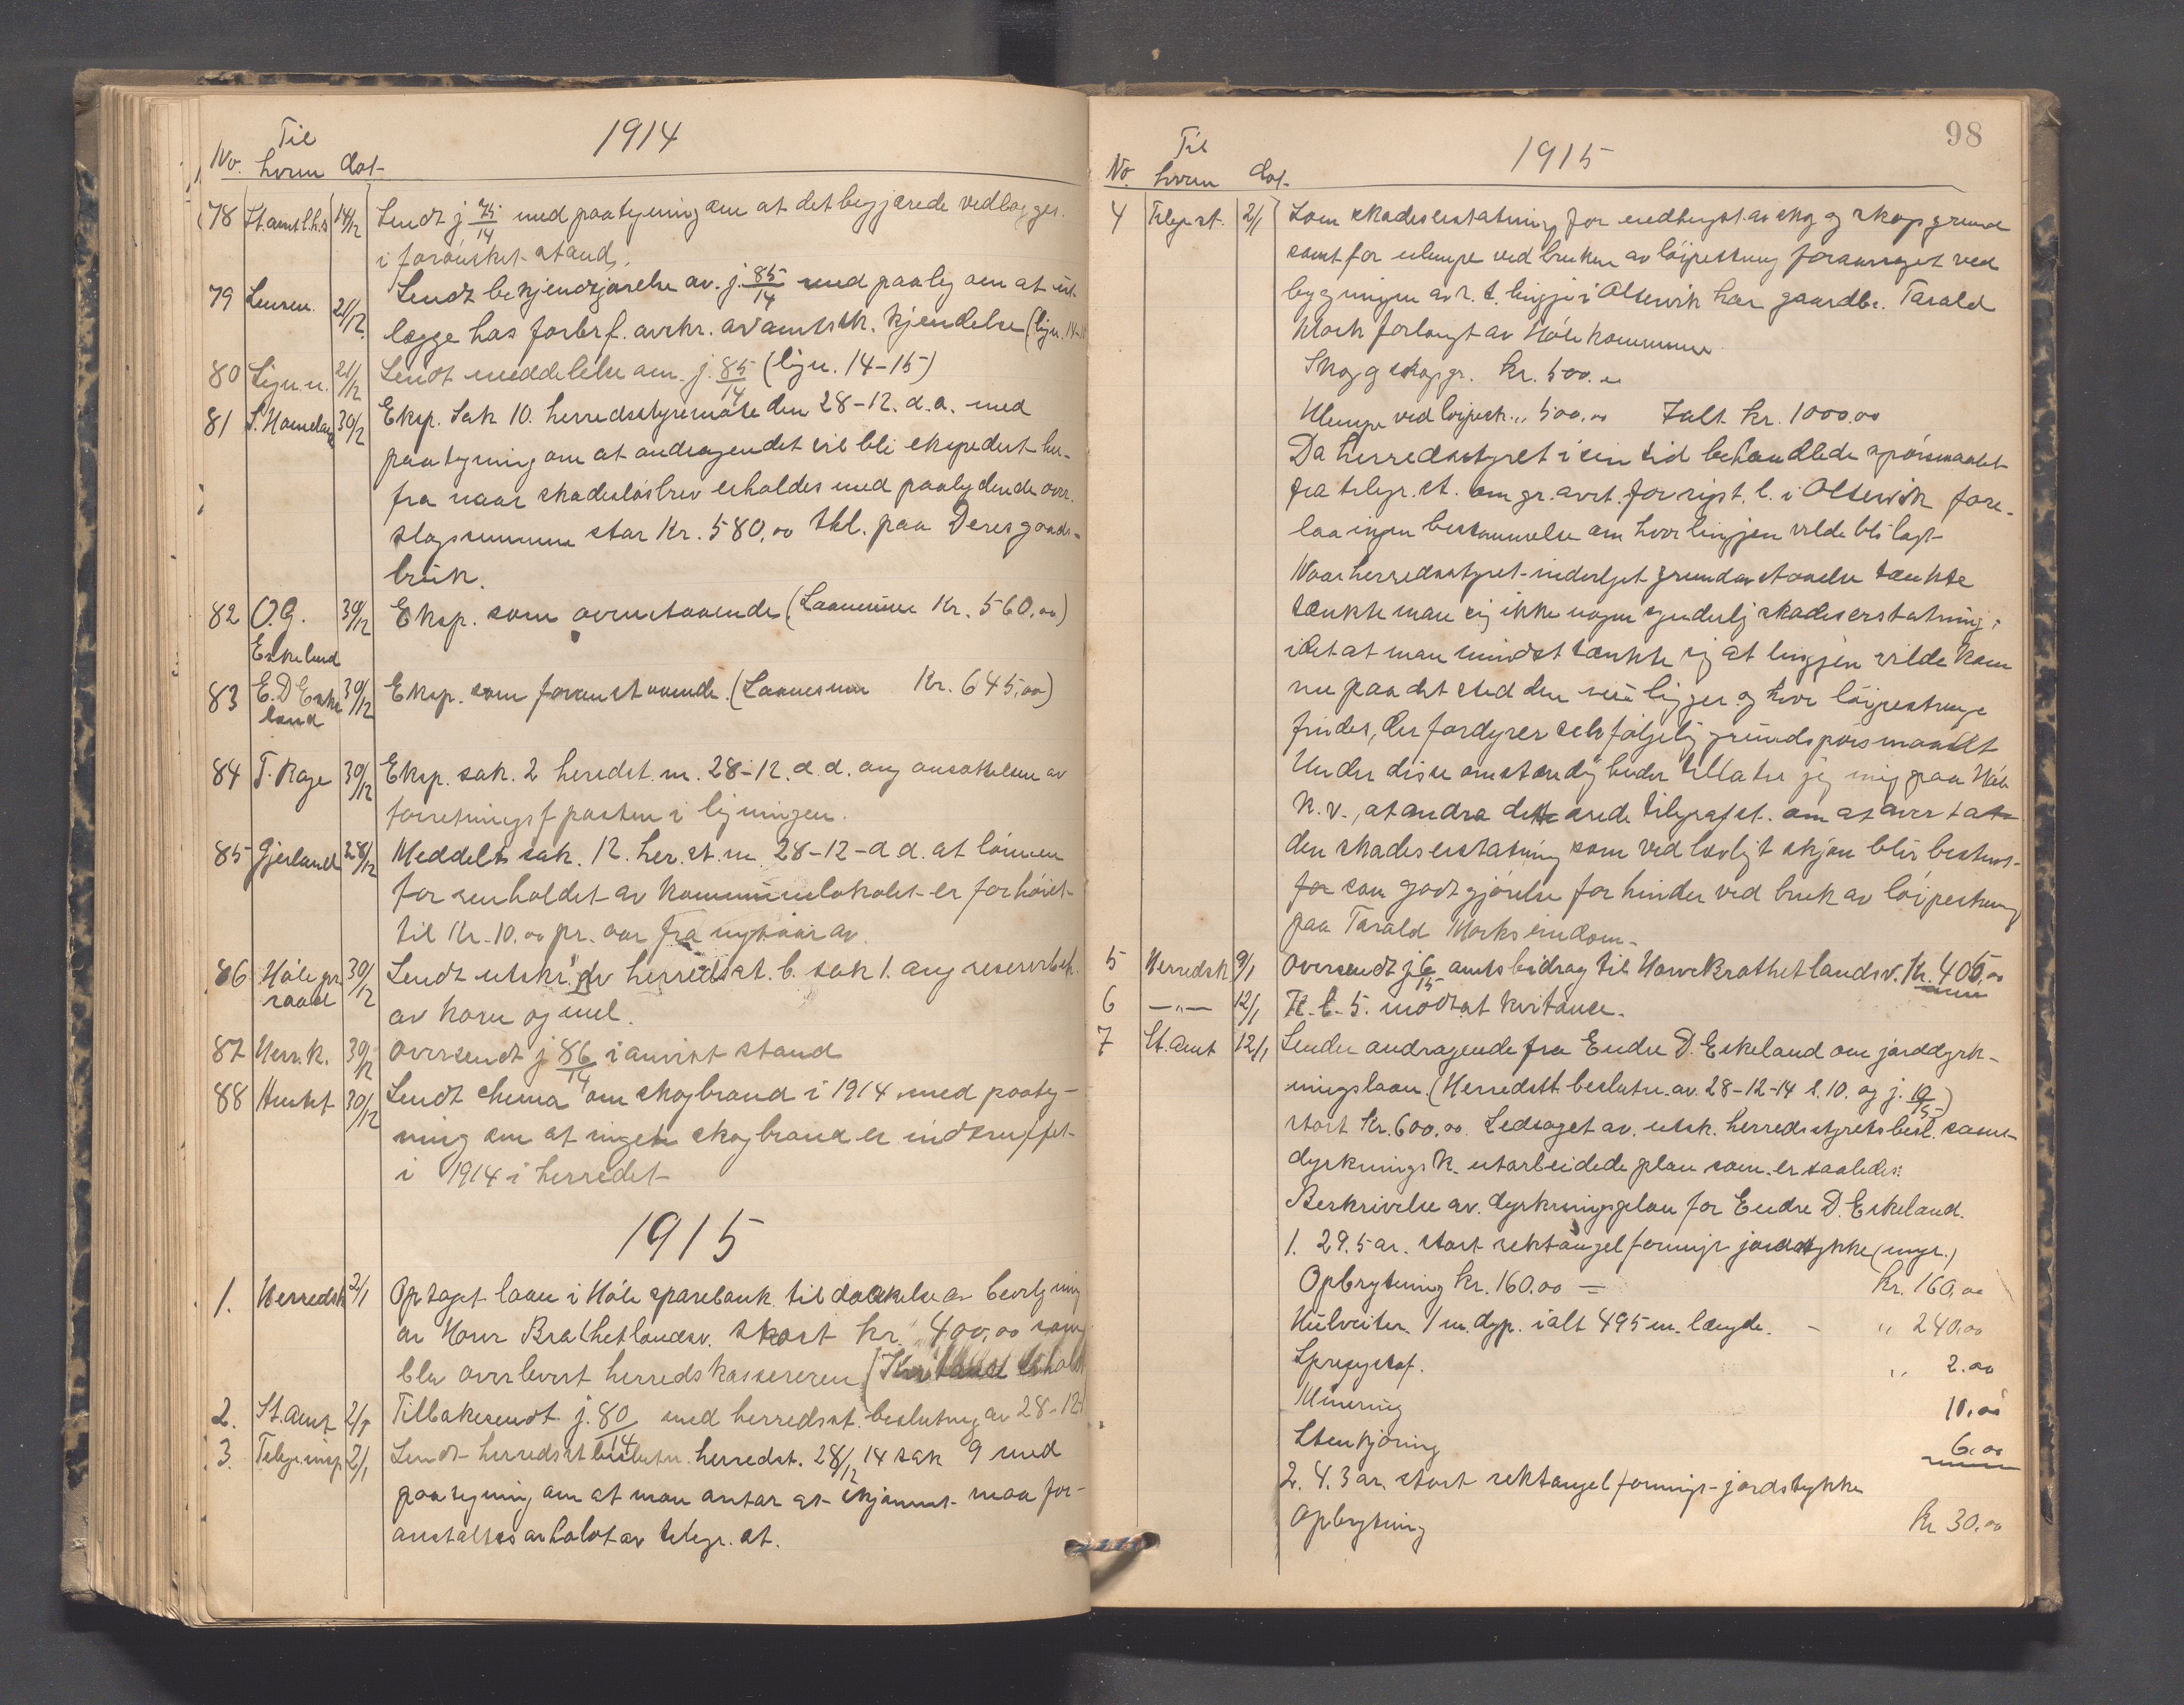 1914
Til
No. hvem dat.
78 St. amt l.h.s 14/12 Sendt j 75/14 med paategning om at det begjærede vedlægges
i forönsket stand.
79 Lensm. 21/12 Sendt bekjendtgjørelse av j. 85/14 med paalæg om at ut-
lægge hos forbr.f. avskr. av amtssk. kjendelse (lign. 14-15
80 Lign.n. 21/12 Sendt meddelelse om j. 85/14 (lign. 14-15)
81 S. Homeland 30/12 Eksp. Sak 10. herredsstyremøte den 28-12. d.a. med
paategning om at andragendet vil bli ekspedert her-
fra naar skadeslösbrev erholdes med paalydende over-
slagssumme stor Kr. 580.00 tkl. paa Deres gaards-
bruk.
82 O.G. 30/12 Eksp. som ovenstaaende (Laanesum Kr. 560.00)
Eskeland
83 E. D Eske 30/12 Eksp. som foranstaaende. (Laanesum Kr. 645.00)
land
84 T. Rage 30/12 Eksp. sak. 2 heredst.m. 28-12. d.d. ang ansættelsen av
forretningsf posten i ligningen.
85 Gjesland 28/12 Meddelt sak. 12. her.st.m. 28-12-d d. at lönnen
for renholdet av kommunelokalet er forhöiet
til Kr. 10.00 pr. aar fra nytaar av.
86 Höle pr. 30/12 Sendt utskr. av herredsst. b. sak 1. ang reservebeh.
raad av korn og mel.
87 Herr.k. 30/12 Oversendt j 86/14 i anvist stand
88 Amtet 30/12 Sendt chema om skogbrand i 1914 med paateg-
ning om at ingen skogbrand er indtruffet
i 1914 i herredet
1915
1. Herredsk 2/1 Optaget laan i Höle sparebank til dækkelse av bevilgning
av Horve Brathetlandsv. stort kr. 400.00 som
blev overlevert herredskassereren
2. St. Amt 2/1 Tilbakesendt j. 80/14 med herredsst. beslutning av 28-12
3. Telegr.insp 2/1 Sendt herredsst beslutn. herredst. 28/12 14 sak 9 med
paategning om at man antar at skjønnet maa for-
anstaltes avholdt av telegr. st.
98
1915
Til
No. hvem dat.
4 Telegr.st. 2/1 Som skadeserstatning for nedhugst av skog og skoggrund
samt for ulempe ved bruken av löipestreng foraarsaget ved
bygningen av r. t. lingje i Oltesvik har gaardbr. Tarald
Mork forlangt av Höle kommune
Skog og skogsgr. kr. 500.00
Ulempe ved löipestr. „ 500.00 Ialt kr. 1000.00
Da herredsstyret i sin tid behandlede spörsmaalet
fra telegr.st. om gr.avst. for rigst. l. i Oltesvik fore-
laa ingen bestemmelse om hvor lingjen vilde bli lagt
Naar herredsstyret vedtaget grundavstaaelse tænkte
tænkte man sig ikke nogen synderlig skadeserstatning,
idet at man mindst tænkte sig at lingjen vilde kom
me paa det sted den nu ligger og hvor löipestrenge
findes, der fordyrer selvfölgelig grundspörsmaalet
Under disse omstændigheder tillater jeg mig paa Höle
k.v., at andra det ærede telegrafst. om at overta
den skadeserstatning som ved lovligt skjön blir bestemt
for som godtgjörelse for hinder ved bruk av löipestreng
paa Tarald Morks eiendom.
5 Herredsk 9/1 Oversendt j 6/15 amtsbidrag til Horve Brathetlandsv. Kr. 405.00
6 —„— 12/1 T. l. 5. motat kvitance.
7 St. Amt 12/1 Sender andragende fra Endre D. Eskeland om jorddyrk-
ningslaan (Herredstt beslutn. av. 28-12-14 s. 10. og j. 10/15)
stort kr. 600.00. Ledsaget av. utsk. herredsstyrets besl. samt
dyrkningsk. utarbeidede plan som er saaledes:
Beskrivelse av. dyrkningsplan for Endre D. Eskeland.
1. 29.5 ar. stort rektangelformigt jordstykke (myr.)
Opbrytning kr. 160.00 = kr. 160.00
Hulveiter 1 m. dyp. ialt 495 m. længde. - „ 240.00
Sprengstof. „ 2.00
Minering 10.00
Stenkjöring 6.00
2. 4.3 ar. stort rektangelformigt jordstykke
Opbrytning kr 30.00